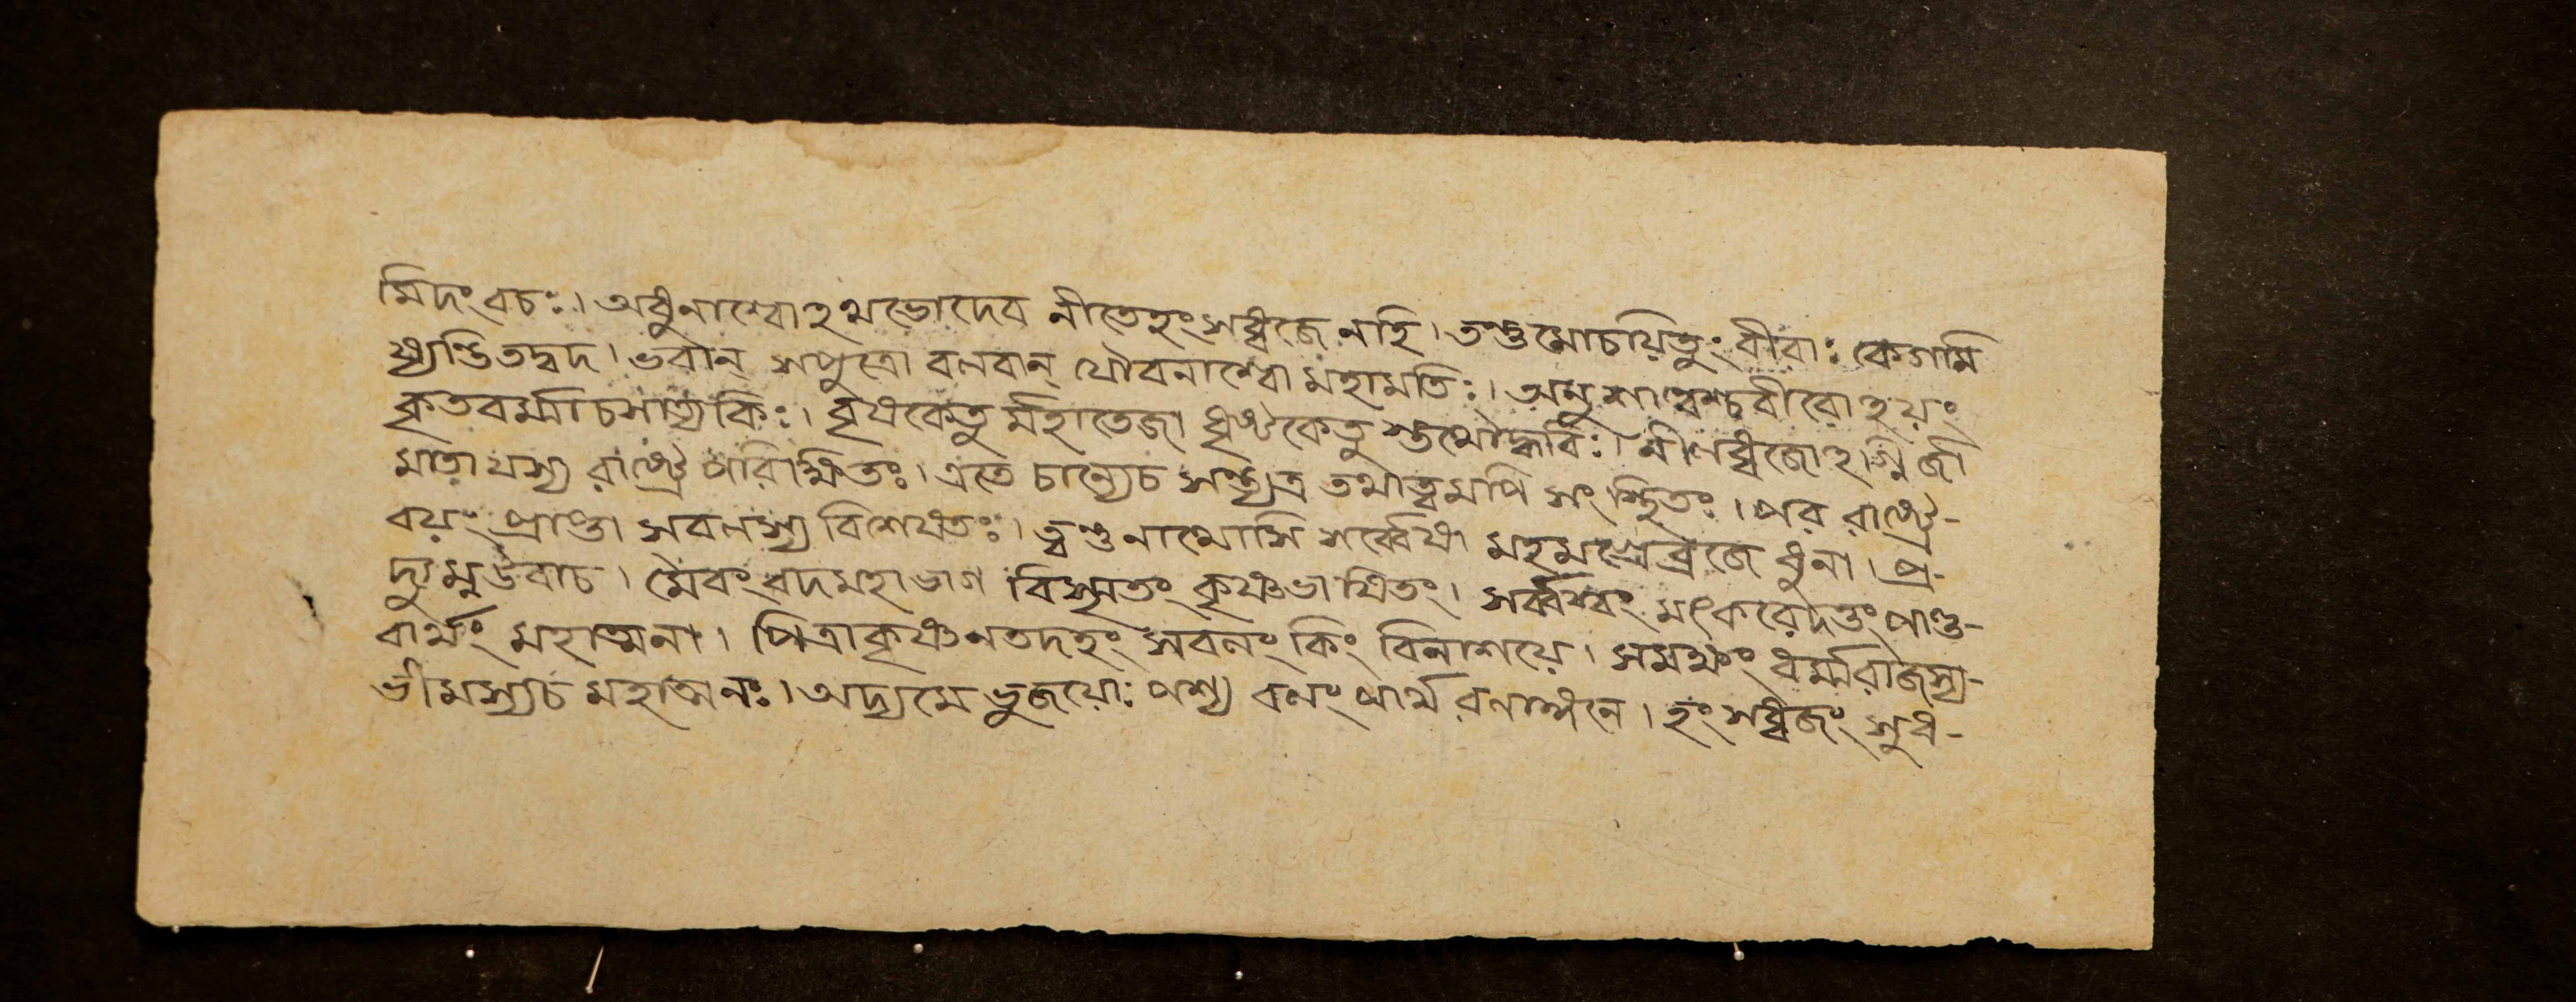 মিদং বচঃ। অধুনাশ্বোহথভোদেব নীতেহংসধ্বজেনহি। তন্তুমোচয়িতুং বীরাঃ কেগমি
ষ্যন্তিতদ্বদ। ভবান্ সপুত্রো বলবান্ যৌবনাশ্বো মহামতিঃ। অনুশাল্বশ্চবীরোহয়ং
কৃতবর্ম্মাচসাত্যকিঃ। বৃষকেতু র্ম্মহাতেজা ধৃষ্টকেতু স্তথোদ্ধবিঃ। নীলধ্বজোহগ্নির্জা
মাতা যস্য রাষ্ট্রে পরিক্ষিতঃ। এতে চান্যেচ সন্ত্যত্র তথাত্বমপি সংস্থিতঃ। পর রাষ্ট্র-
বয়ং প্রাপ্তা সবলস্য বিশেষতঃ। ত্বন্তুনাথোসি সর্ব্বেষা মহমগ্রেব্রজে ধুনা। প্র-
দ্যুম্নউবাচ। মৈবং বদমহাভাগ বিস্মৃতং কৃষ্ণভাষিতং। সর্ব্বস্বং মৎকরেদত্তং পাণ্ড-
বার্থং মহাত্মনা। পিত্রাকৃষ্ণেনতদহং সবলং কিং বিনাশয়ে। সমক্ষং ধর্ম্মরাজস্য-
ভীমস্যচ মহাত্মনঃ। অদ্যমে ভুজয়োঃ পশ্য বলং পার্থ রণাঙ্গনে। হংসধ্বজং সুধ-